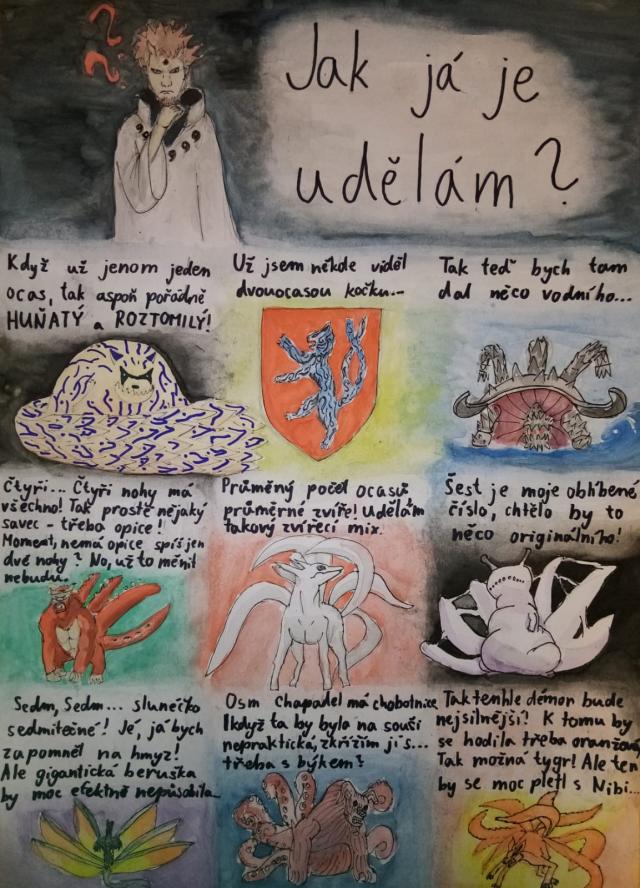 ??
Jak já je
udělám?
Když už jenom jeden
ocas, tak aspoň pořádně
HUŇATÝ a ROZTOMILÝ!
Už jsem někde viděl
dvouocasou kočku...
Tak teď bych tam
dal něco vodního...
Čtyři... Čtyři nohy má
všechno! Tak prostě nějaký
savec - třeba opice!
Moment, nemá opice spíš jen
dvě nohy? No, už to měnit
nebudu.
Průměrný počet ocasů
průměrné zvíře! Udělám
takový zvířecí mix.
Šest je moje oblíbené
číslo, chtělo by to
něco originálního!
Sedm, Sedm... slunéčko
sedmitečné! Jé, já bych
zapomněl na hmyz!
Ale gigantická beruška
by moc efektně nepůsobila...
Osm chapadel má chobotnice
Ikdyž ta by byla na souši
nepraktická, zkřížím ji s...
třeba s býkem?
Takže tenhle démon bude
nejsilnější? K tomu by
se hodila třeba oranžová,
Tak možná tygr! Ale ten
by se moc pletl s Nibi...